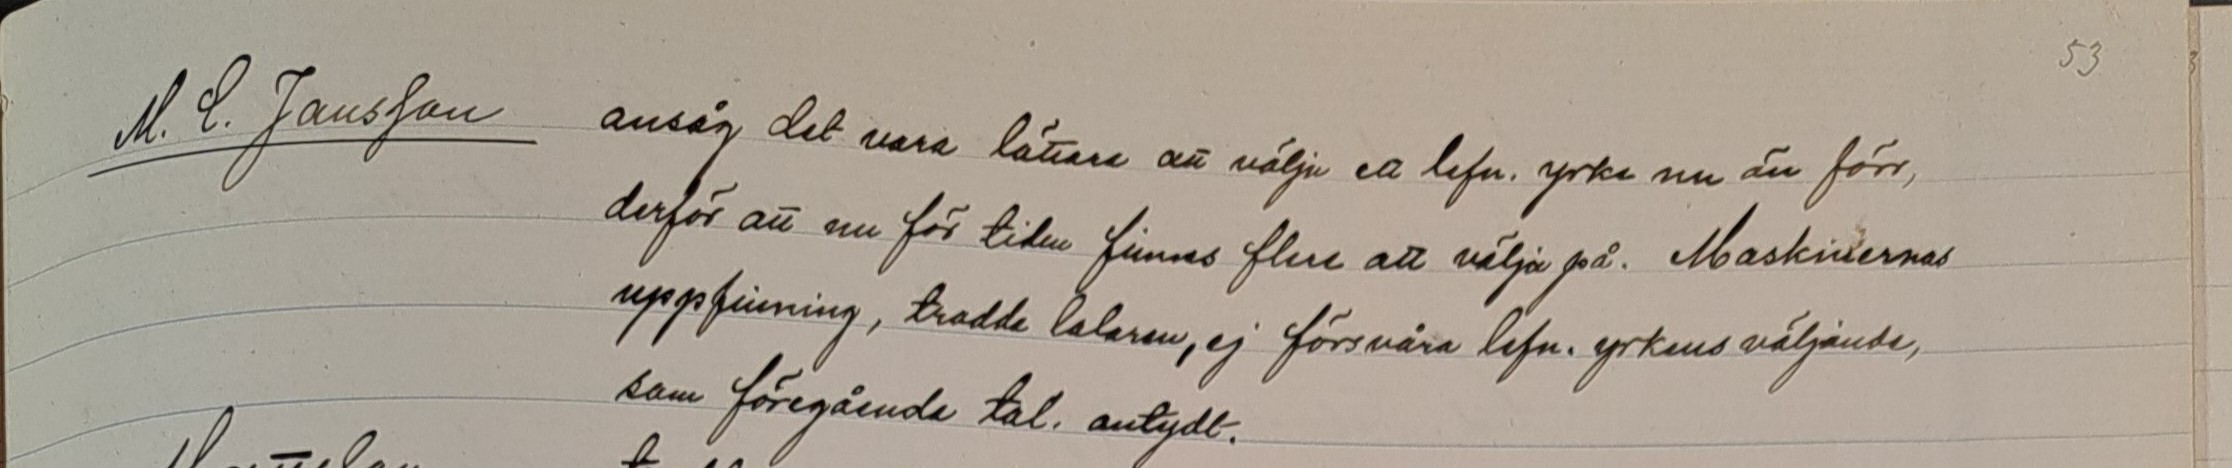 53
M. E. Jansson ansåg det vara lättare att välja ett lefn. yrke nu än förr,
derför att nu för tiden finnas flere att välja på. Maskinernas
uppfinning, trodde talaren, ej försvåra lefn. yrkens väljande,
som föregående tal. antydt.